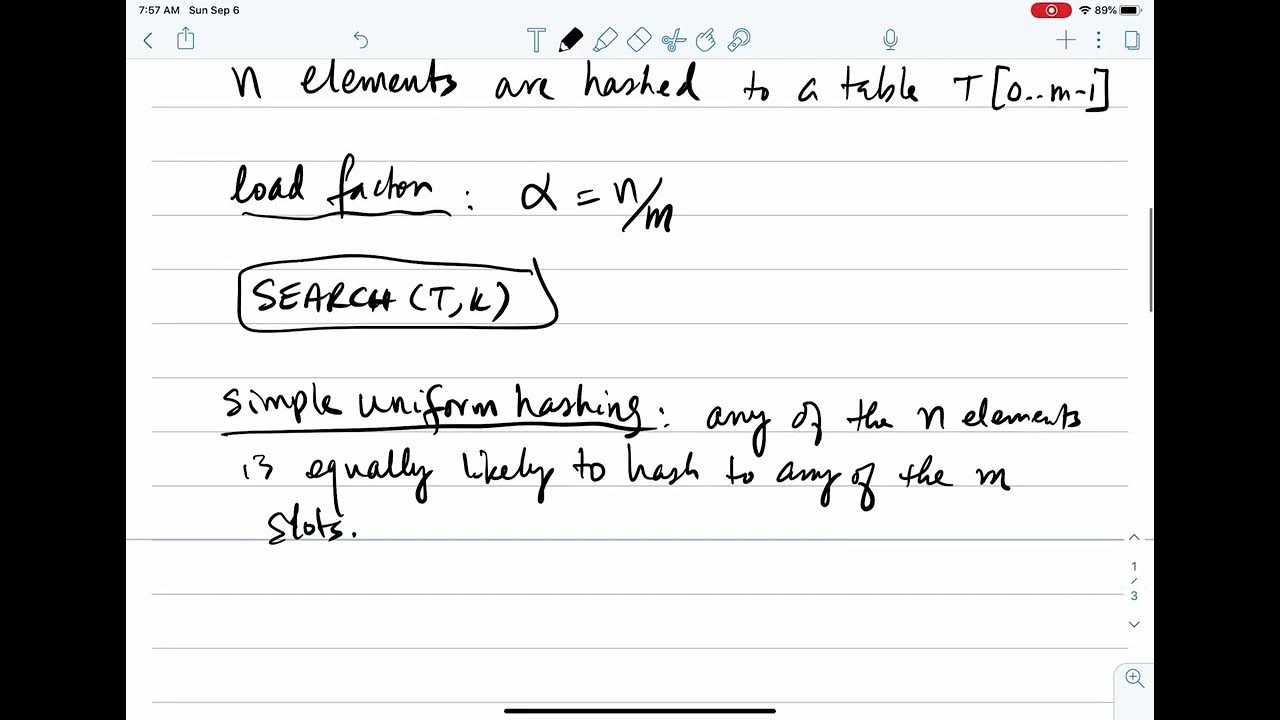 7:57 AM Sun Sep 6 89%
T
n elements are hashed to a table T[0..m-1]
load factor : α = n/m
SEARCH (T,k)
simple uniform hashing : any of the n elements
is equally likely to hash to any of the m
slots.
1
/
3